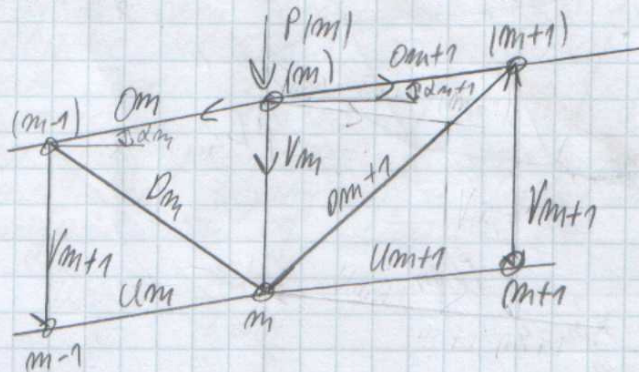 P(m)
(m)
Om+1
(m+1)
αm+1
Om
(m-1)
αm
Vm
Dm
Dm+1
Vm+1
Vm+1
Um
Um+1
m
m+1
m-1